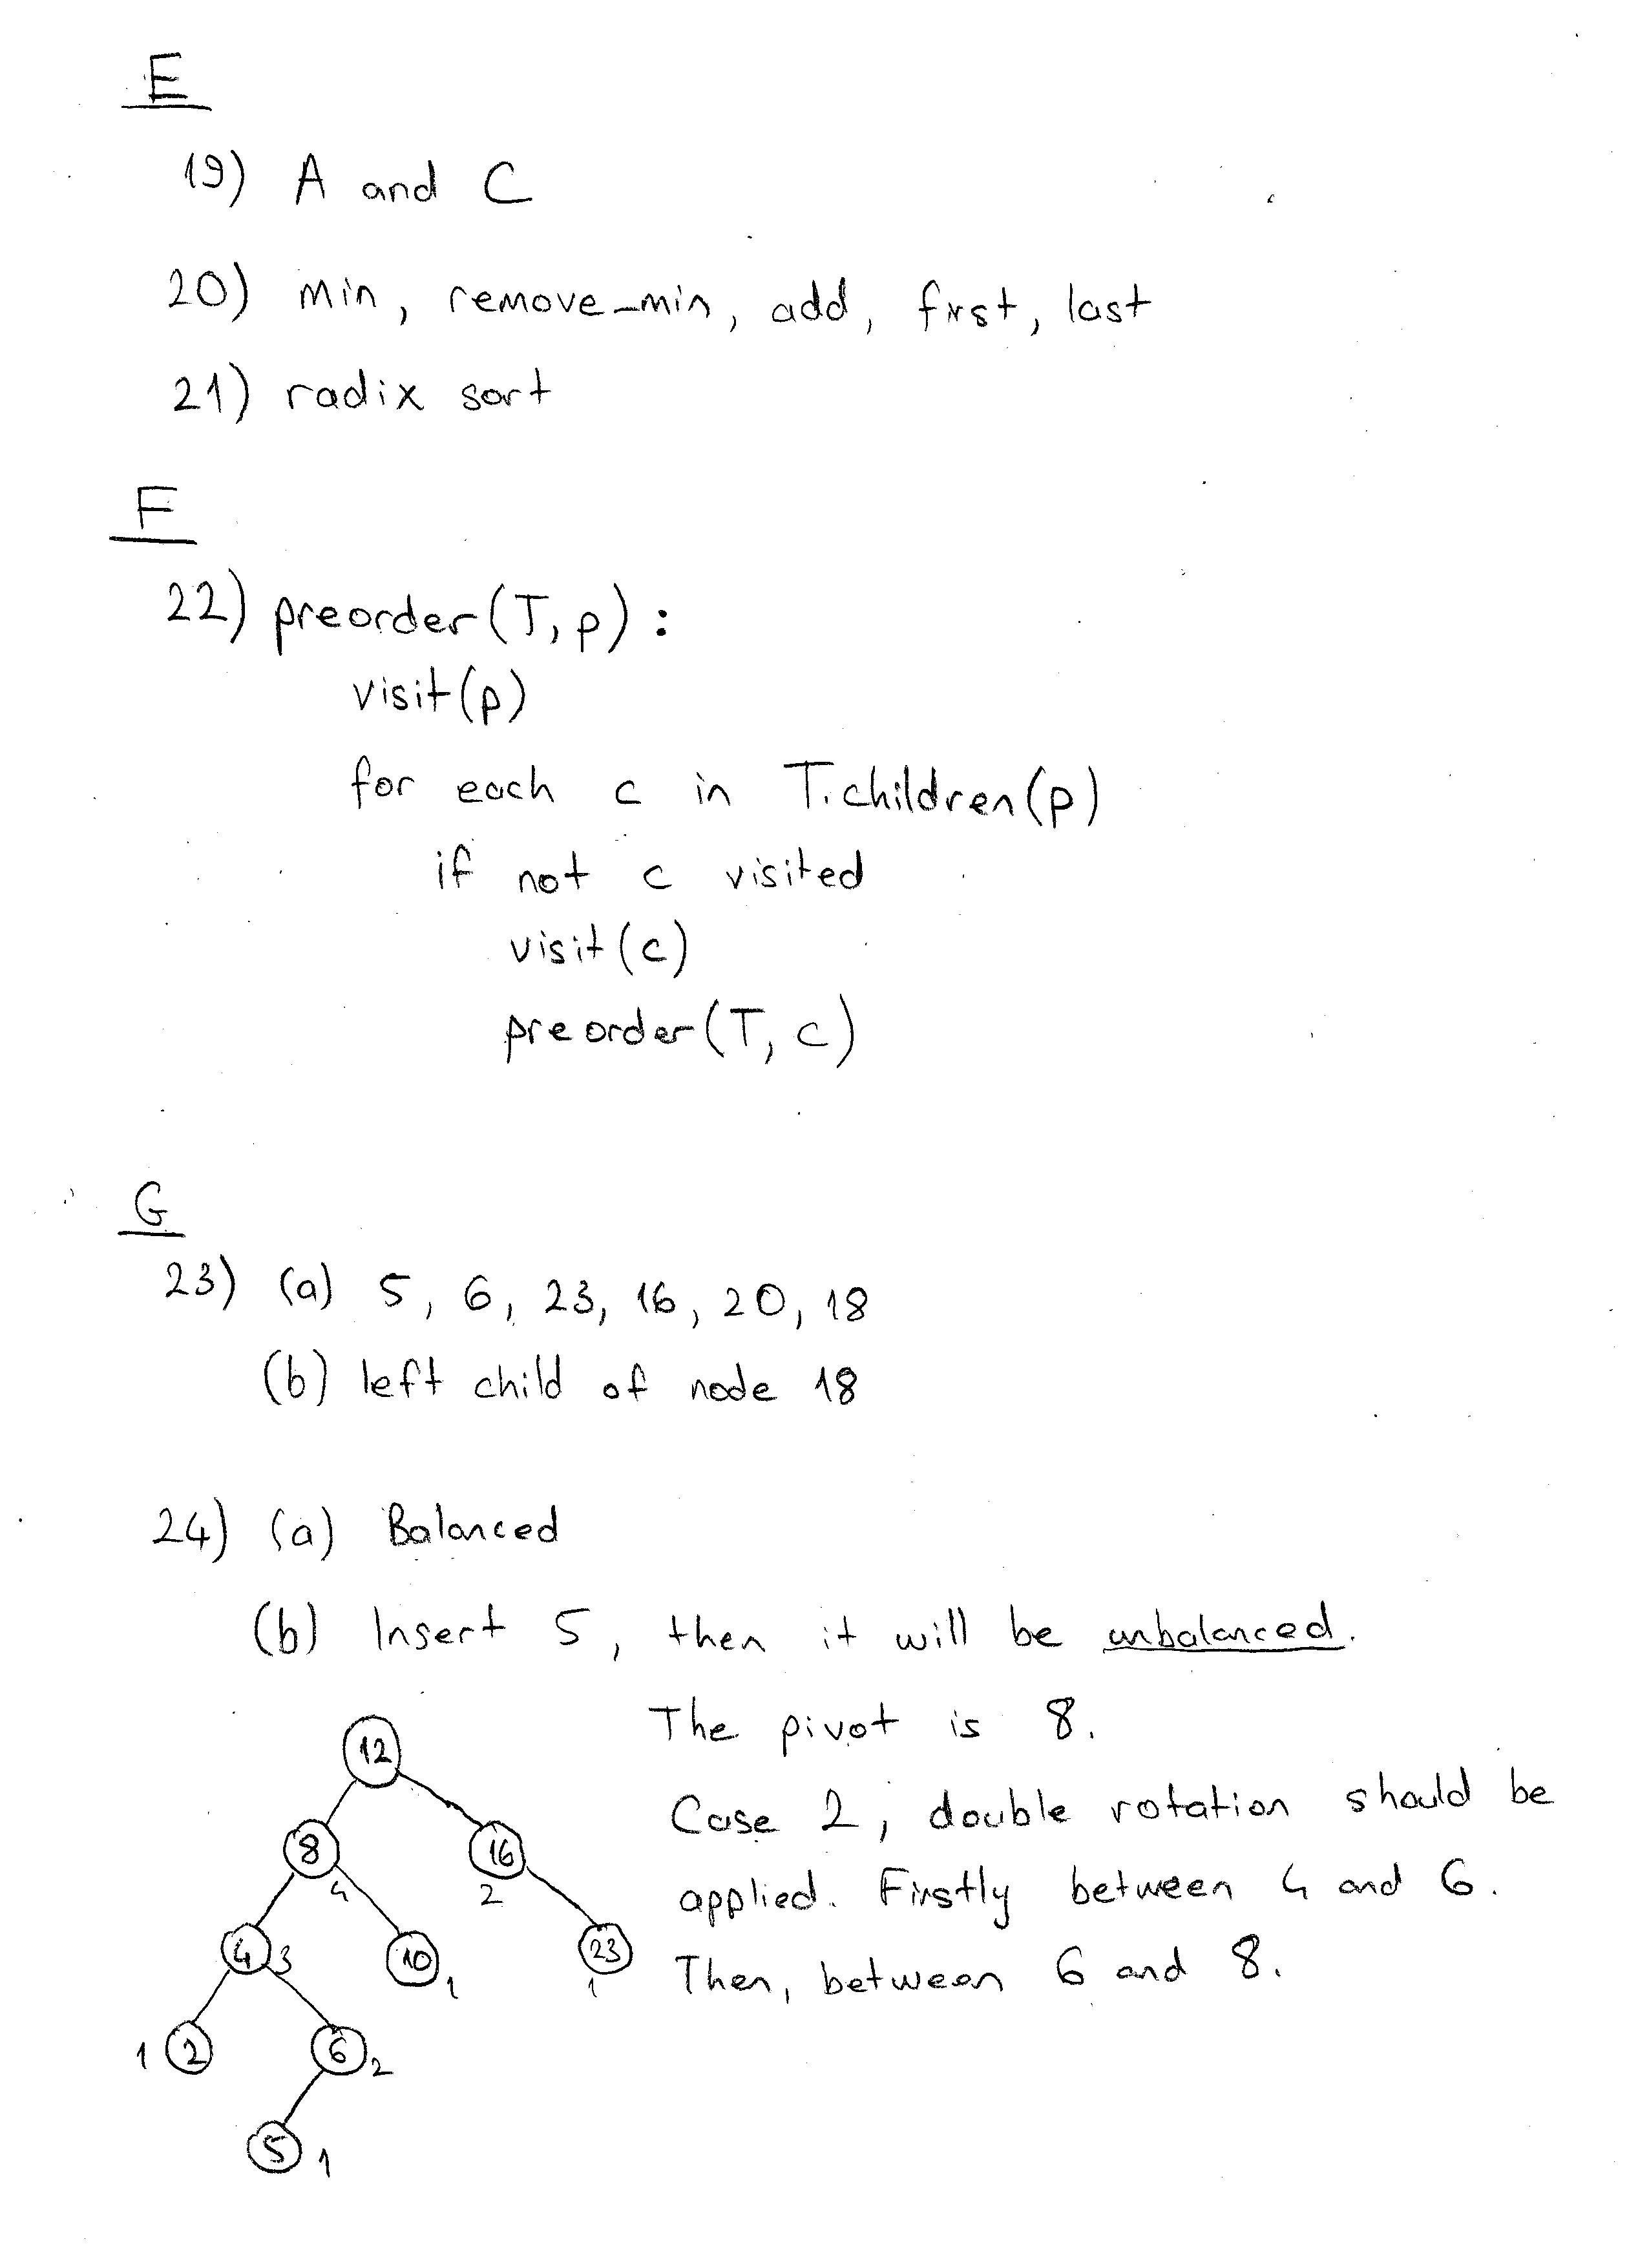 E
19) A and C
20) min, remove_min, add, first, last
21) radix sort
F
22) preorder(T, p) :
visit(p)
for each c in T.children(p)
if not c visited
visit(c)
preorder(T, c)
G
23) (a) 5, 6, 23, 16, 20, 18
(b) left child of node 18
24) (a) Balanced
(b) Insert 5, then it will be unbalanced.
The pivot is 8.
Case 2, double rotation should be
applied. Firstly between 4 and 6.
Then, between 6 and 8.
12
8 16
4 2
4 3 10 1 23 1
1 2 6 2
5 1